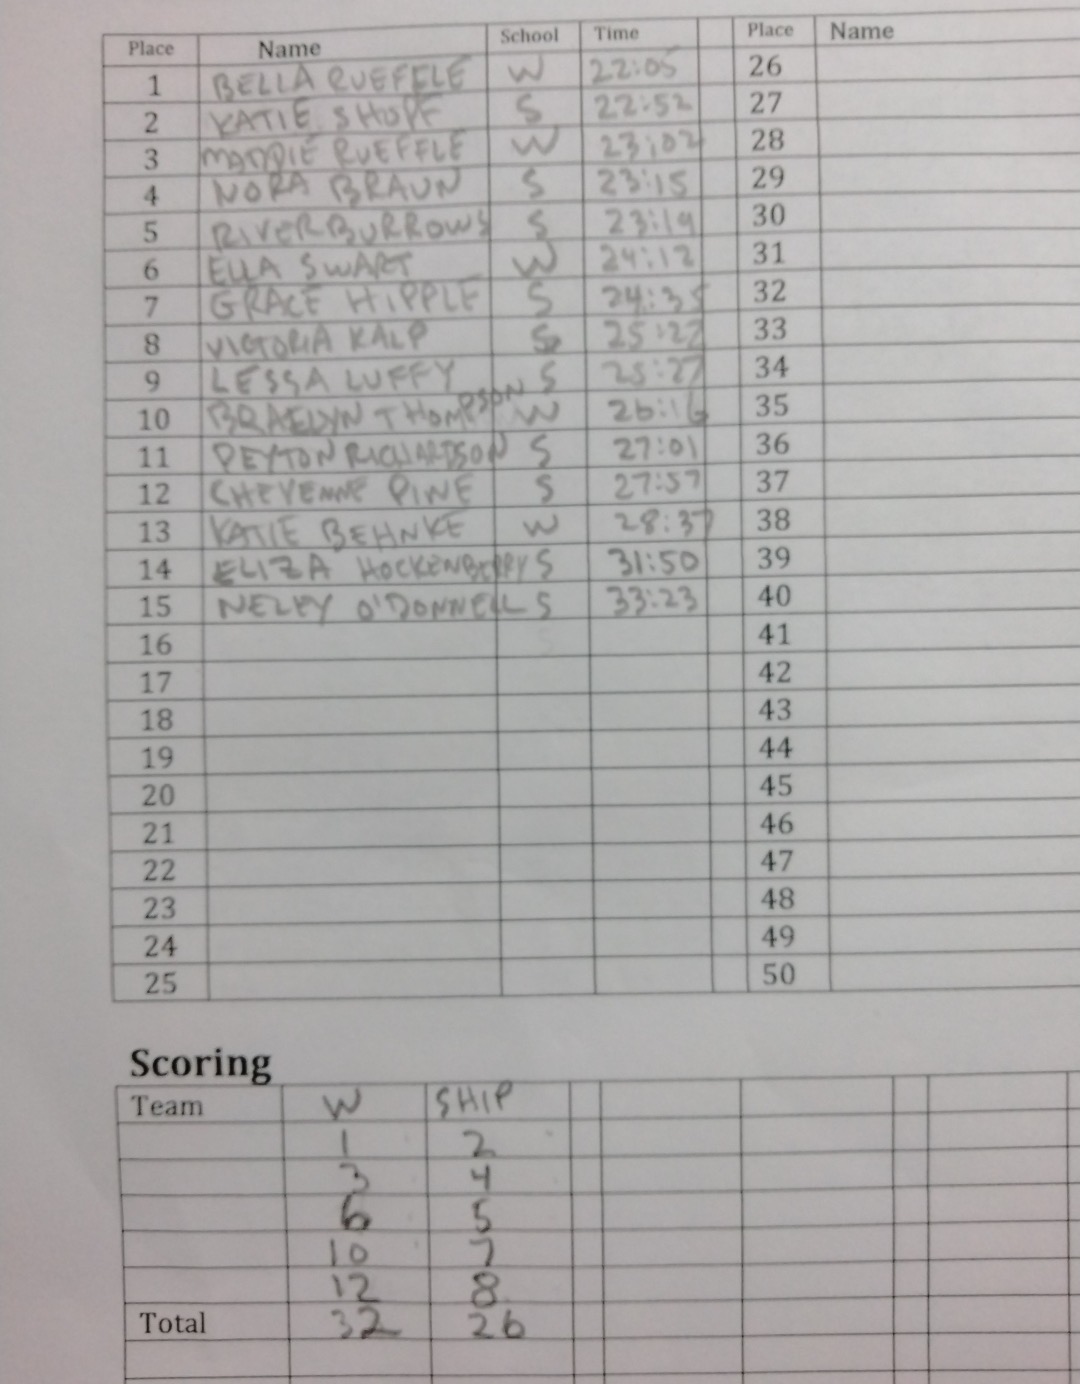 Place Name School Time Place Name
1 BELLA RUEFFLE W 22:05 26
2 KATIE SHOFF S 22:52 27
3 MADDIE RUEFFLE W 23:02 28
4 NORA BRAUN S 23:15 29
5 RIVER BURROWS S 23:19 30
6 ELLA SWART W 24:12 31
7 GRACE HIPPLE S 24:35 32
8 VICTORIA KALP S 25:22 33
9 LESSA LUFFY S 25:27 34
10 BRAELYN THOMPSON W 26:16 35
11 PEYTON RICHARDSON S 27:01 36
12 CHEYENNE PINE S 27:57 37
13 KATIE BEHNKE W 28:37 38
14 ELIZA HOCKENBERRY S 31:50 39
15 NELLY O'DONNELL S 33:23 40
16 41
17 42
18 43
19 44
20 45
21 46
22 47
23 48
24 49
25 50
Scoring
Team W SHIP
1 2
3 4
6 5
10 7
12 8
Total 32 26